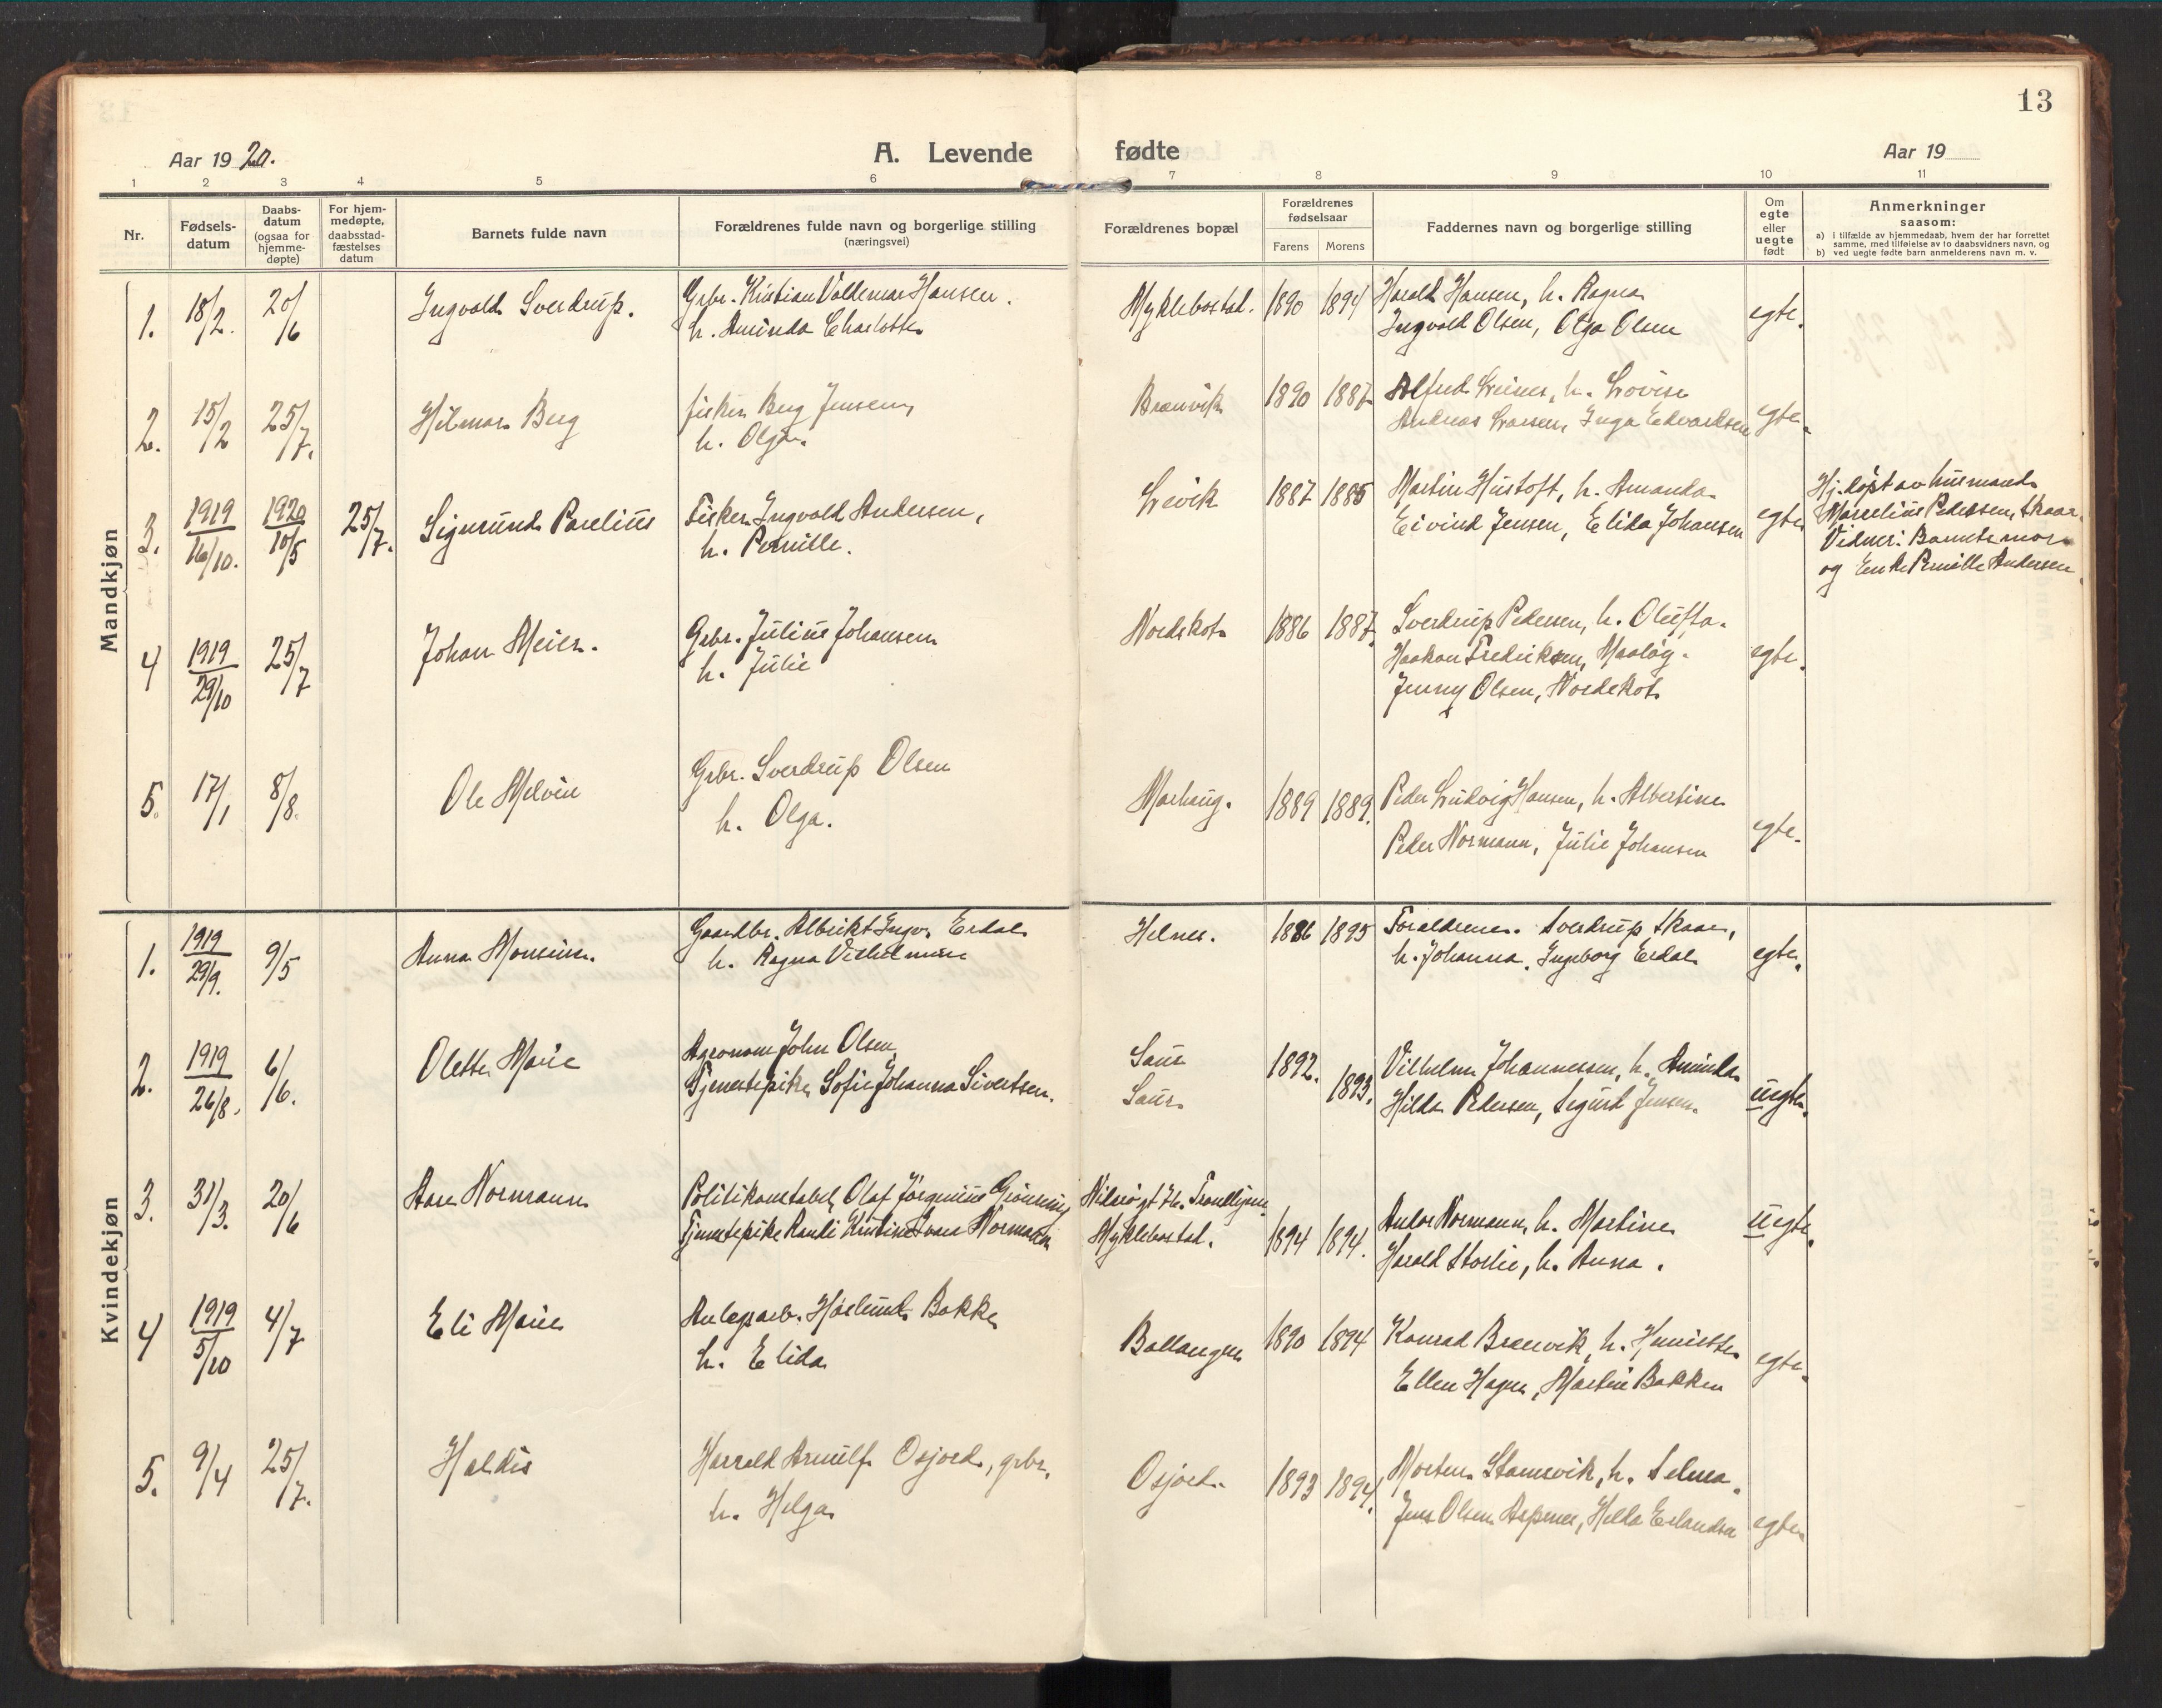 13
Aar 1920.
A. Levende fødte
Aar 19
1 2 3 4 5 6 7 8 9 10 11
Nr.
Fødsels-
datum
Daabs-
datum
(ogsaa for
hjemme-
døpte)
For hjem-
medøpte,
daabsstad-
fæstelses
datum
Barnets fulde navn
Forældrenes fulde navn og borgerlige stilling
(næringsvei)
Forældrenes bopæl
Forældrenes
fødselsaar
Farens Morens
Faddernes navn og borgerlige stilling
Om
egte
eller
uegte
født
Anmerkninger
saasom:
a) i tilfælde av hjemmedaab, hvem der har forrettet
samme, med tilføielse av to daabsvidners navn, og
b) ved uegte fødte barn anmelderens navn m. v.
Mandkjøn
1. 18/2. 20/6 Ingvald Sverdrup. Grbr. Kristian Valdemar Hansen. Myklebostad. 1890 1894 Harald Hansen, h. Ragna egte.
h. Aminda Charlotte Ingvald Olsen, Olga Olsen
2. 15/2 25/7. Hilmar Berg fisker Berg Jensen, Brænvik 1890 1887 Alfred Leines, h. Lovise egte.
h. Olga. Andreas Larsen, Inga Edvardsen
3. 1919 16/10. 1920 10/5 25/7. Sigmund Parelius Fisker Ingvald Andersen, Levik 1887 1885 Martin Hustoft, h. Amanda egte
h. Pernille. Eivind Jensen, Elida Johansen
Hj.døpt av husmand
Marselius Pedersen, Skaar.
Vidner: Barnets mor
og Enke Pernille Andersen
4 1919 29/10 25/7 Johan Meier. Grbr. Julius Johansen Nordskot 1886 1887. Sverdrup Pedersen, h. Olufta. egte.
h. Julie Haakon Fredriksen, Maaløy.
Jenny Olsen, Nordskot
5. 17/1 8/8. Ole Melvin Grbr. Sverdrup Olsen Morhaug. 1889 1889. Peder Ludvig Hansen, h. Albertine egte.
h. Olga. Peder Normann, Julie Johansen
Kvindekjøn
1. 1919 29/9. 9/5 Anna Monsine. Gaardbr. Albrikt Ingv. Erdal Helnes. 1886 1895 Forældrene. Sverdrup Skaar, egte.
h. Ragna Vilhelmine h. Johanna, Ingeborg Erdal
2. 1919 26/8. 6/6. Olette Marie Agronom John Olsen Saur 1892. Vilhelm Johannessen, h. Aminda uegte.
Tjenestepike Sofie Johanna Sivertsen. Saur 1893. Hilda Pedersen, Sigurd Jensen.
3. 31/3. 20/6 Aase Normann Politikonstabel Olaf Jørginius Grønning Trondhjem uegte.
Tjenestepike Randi Kristine Normann Myklebostad. 1894 1894. Andor Normann, h. Martine
Harald Storlie, h. Anna.
4 1919 5/10 4/7 Eli Marie Anlegsarb. Haslund Bakke Ballangen 1890 1894 Konrad Brænvik, h. Henriette egte.
h. Elida Ellen Hagen, Martin Bakken
5. 9/4 25/7. Haldis Harrald Arnulf Osjord, grbr. Osjord. 1893 1894. Morten Stamsvik, h. Selma. egte
h. Helga Jens Olsen Aspenes, Hilda Erlandsen